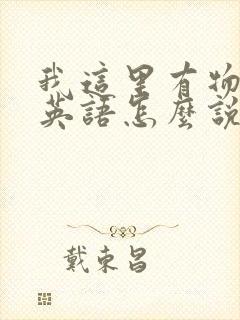 我這里有物
英語怎麼說
戴東昌